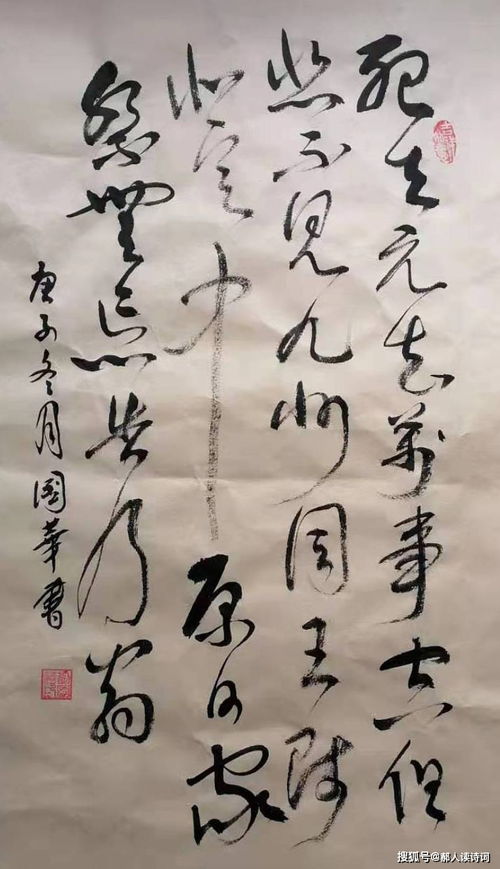 死去元知萬事空但
悲不見九州同王師
北定中原日家
祭無忘告乃翁
庚子冬月國華書
搜狐号@郝人读诗词